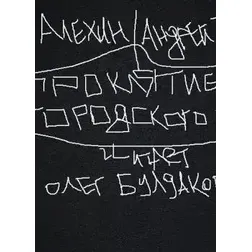 АЛЕХИН АНДРЕЙ
ПРОКЛЯТИЕ
ГОРОДСКОГО
ЧИТАЕТ
ОЛЕГ БУЛДАКОВ